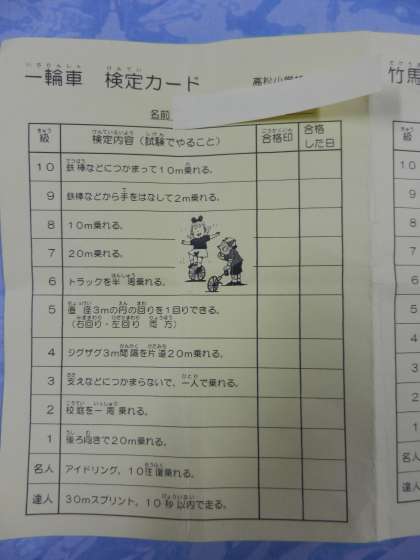 一輪車 検定カード 高松小学校
名前
級 検定内容（試験でやること） 合格印 合格した日
10 鉄棒などにつかまって10m乗れる。
9 鉄棒などから手をはなして2m乗れる。
8 10m乗れる。
7 20m乗れる。
6 トラックを半周乗れる。
5 直径3mの円の回りを1回りできる。
（右回り・左回り 両方）
4 ジグザグ3m間隔を片道20m乗れる。
3 支えなどにつかまらないで、一人で乗れる。
2 校庭を一周乗れる。
1 後ろ向きで20m乗れる。
名人 アイドリング、10往復乗れる。
達人 30mスプリント、10秒以内で走る。
竹馬
級
10
9
8
7
6
5
4
3
2
1
名人
達人